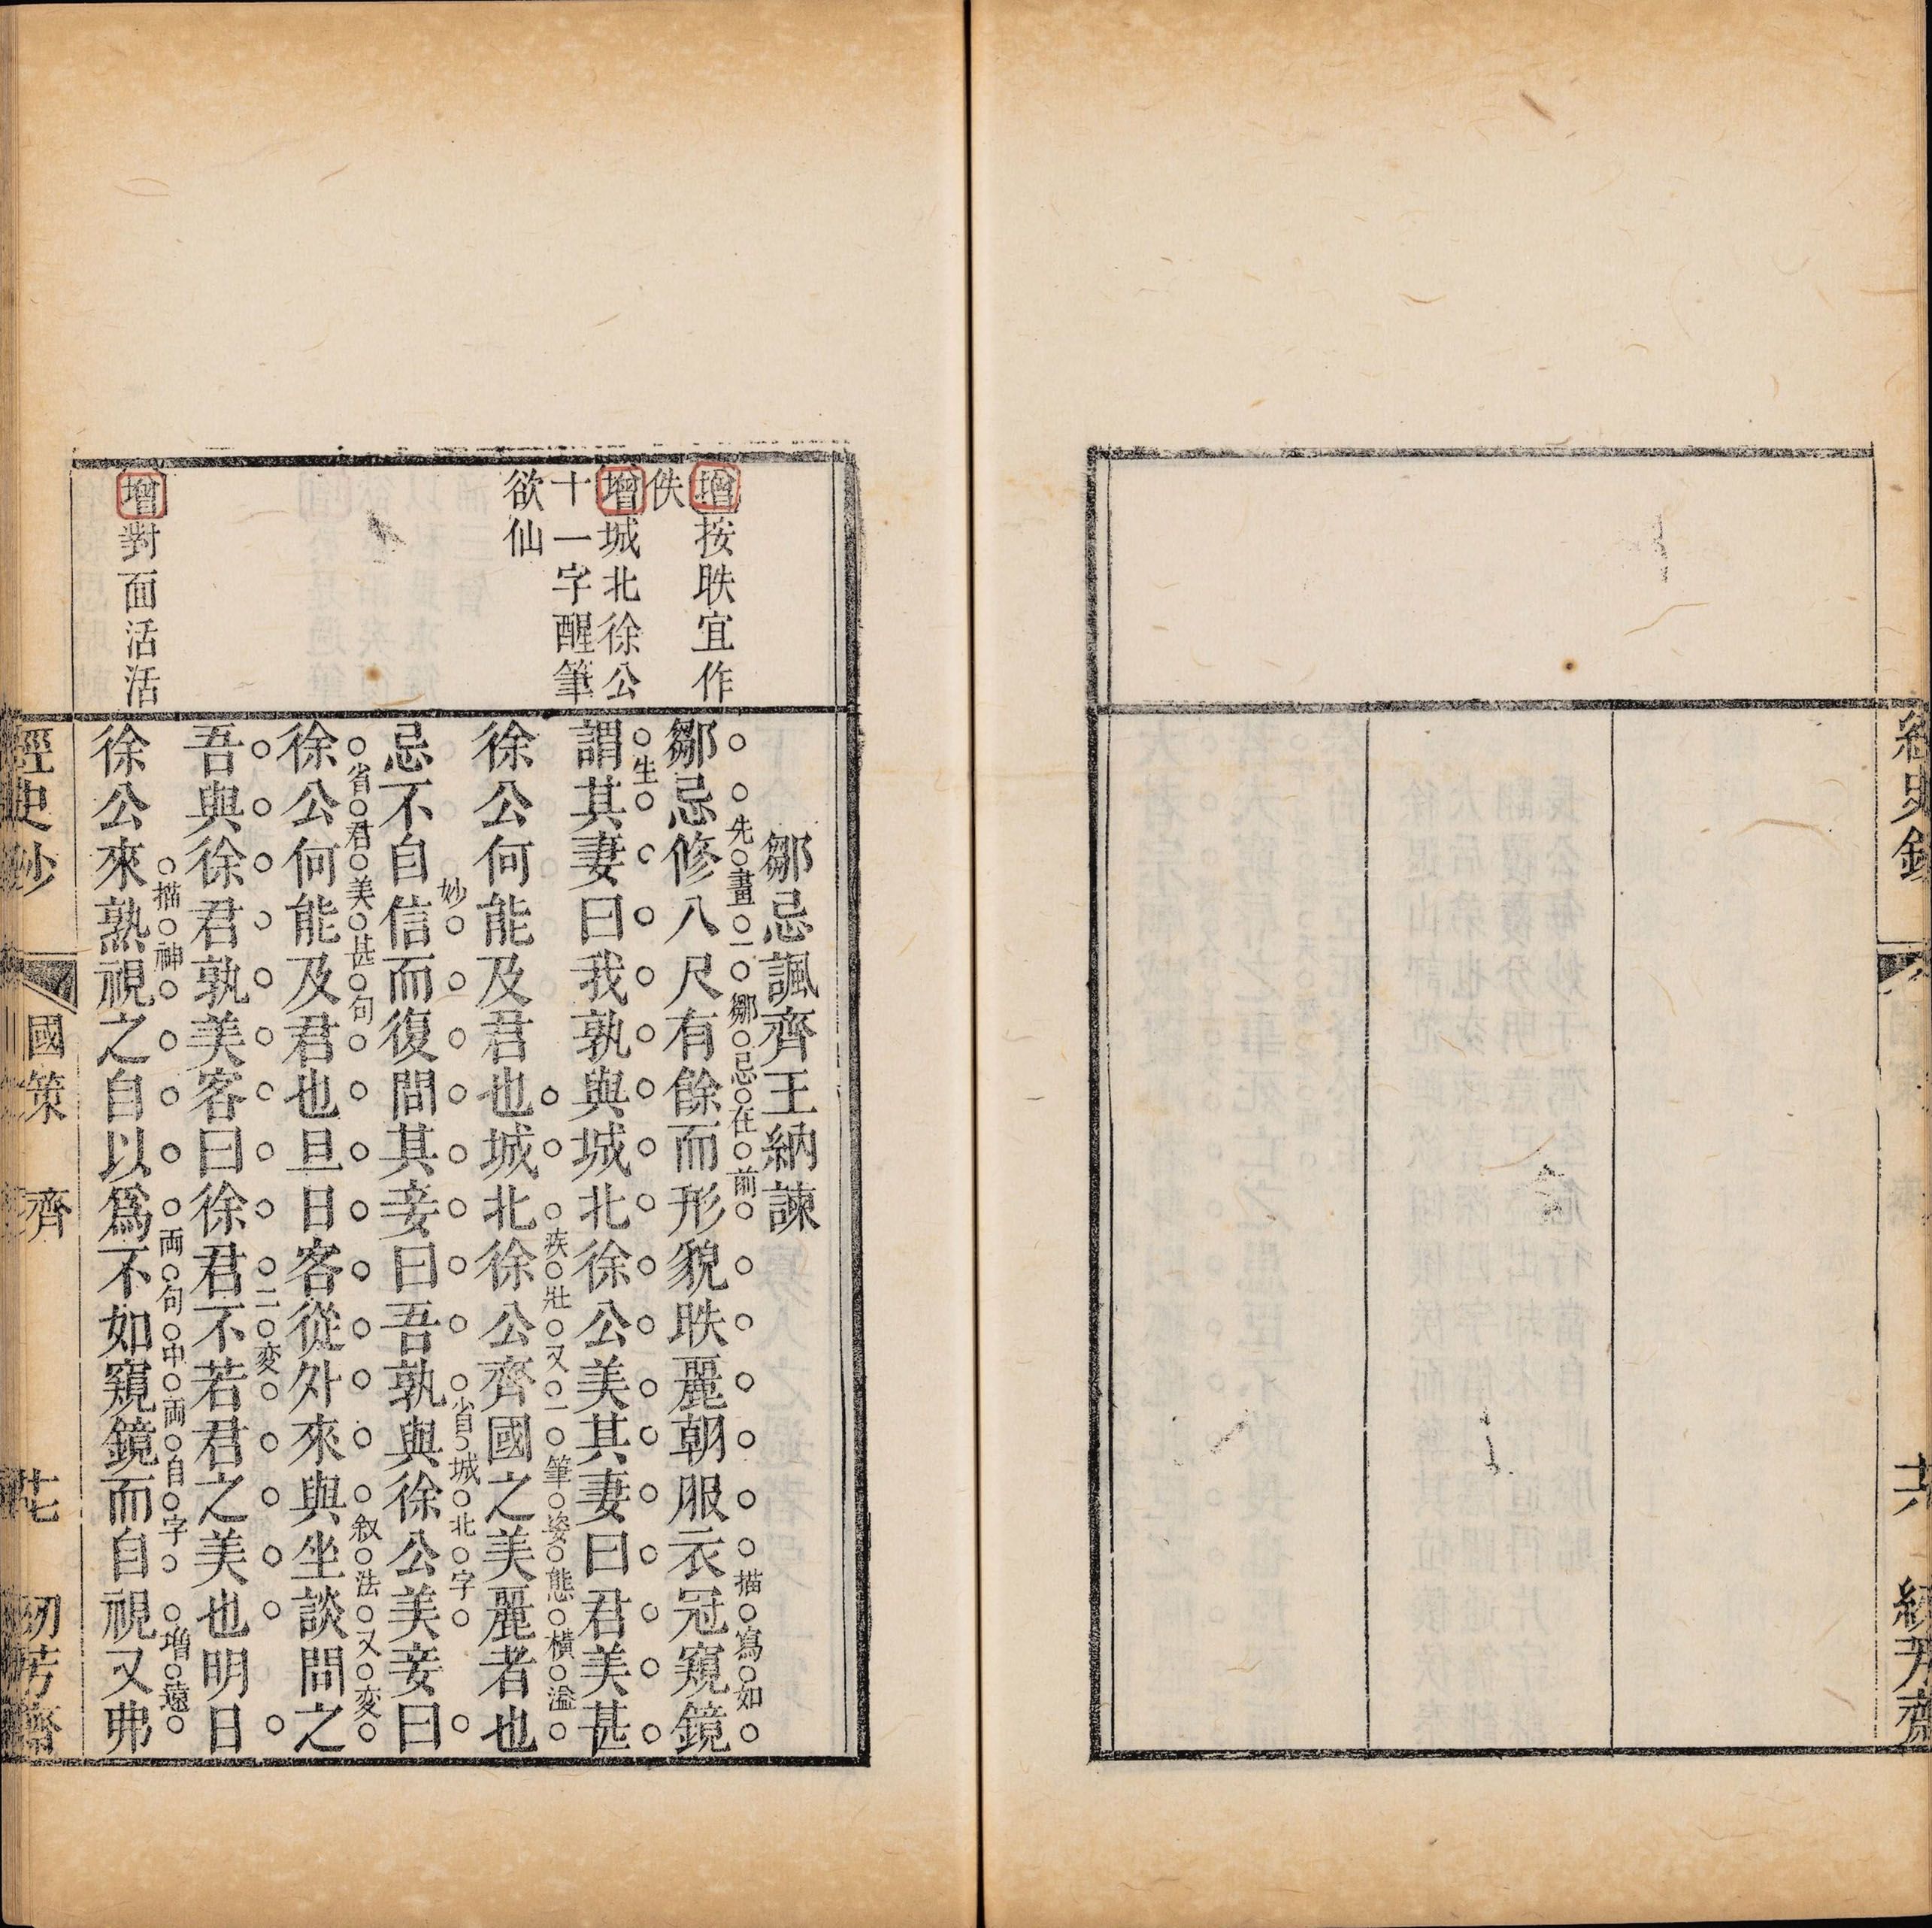 鄒忌諷齊王納諫
鄒忌修八尺有餘而形貌昳麗朝服衣冠窺鏡
先畫一鄒忌在前
描寫如
謂其妻曰我孰與城北徐公美其妻曰君美甚
生
徐公何能及君也城北徐公齊國之美麗者也
疾壯又一筆姿態橫溢
忌不自信而復問其妾曰吾孰與徐公美妾曰
妙
省城北字
徐公何能及君也旦日客從外來與坐談問之
省君美甚句
叙法又変
吾與徐君孰美客曰徐君不若君之美也明日
二変
徐公來熟視之自以爲不如窺鏡而自視又弗
描神
両句中両自字
増遠
增按昳宜作
佚
增城北徐公
十一字醒筆
欲仙
增對面活活
經史鈔
國策
齊